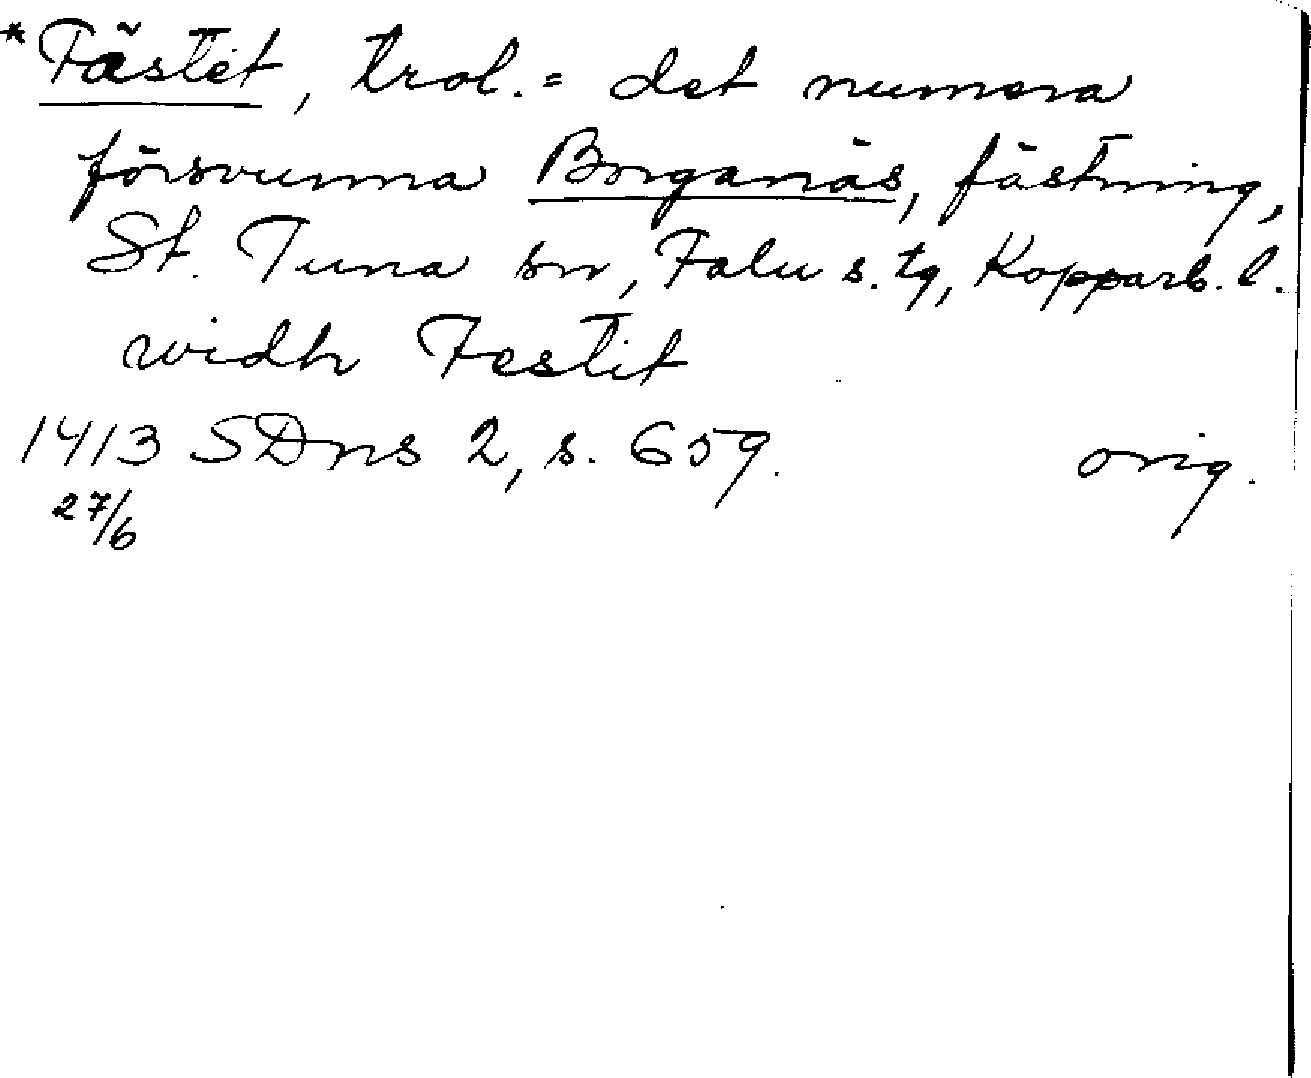 *Fästet, trol. = det numera
försvunna Borganäs, fästning,
St. Tuna sn, Falu s. tg, Kopparb. l.
widh Festit
1413 SDns 2, s. 659. orig.
27/6